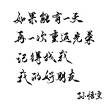 如果能有一天
再一次重返光荣
记得找我
我的好朋友
孙悟空